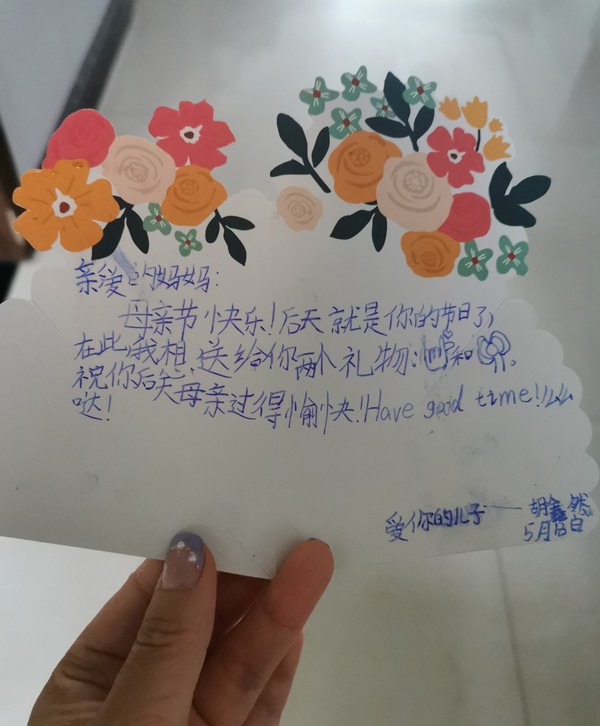 亲爱的妈妈:
母亲节快乐!后天就是你的节日了,
在此,我想送给你两个礼物:和。
祝你后天母亲过得愉快!Have good time!么么
哒!
爱你的儿子——胡鑫然
5月日